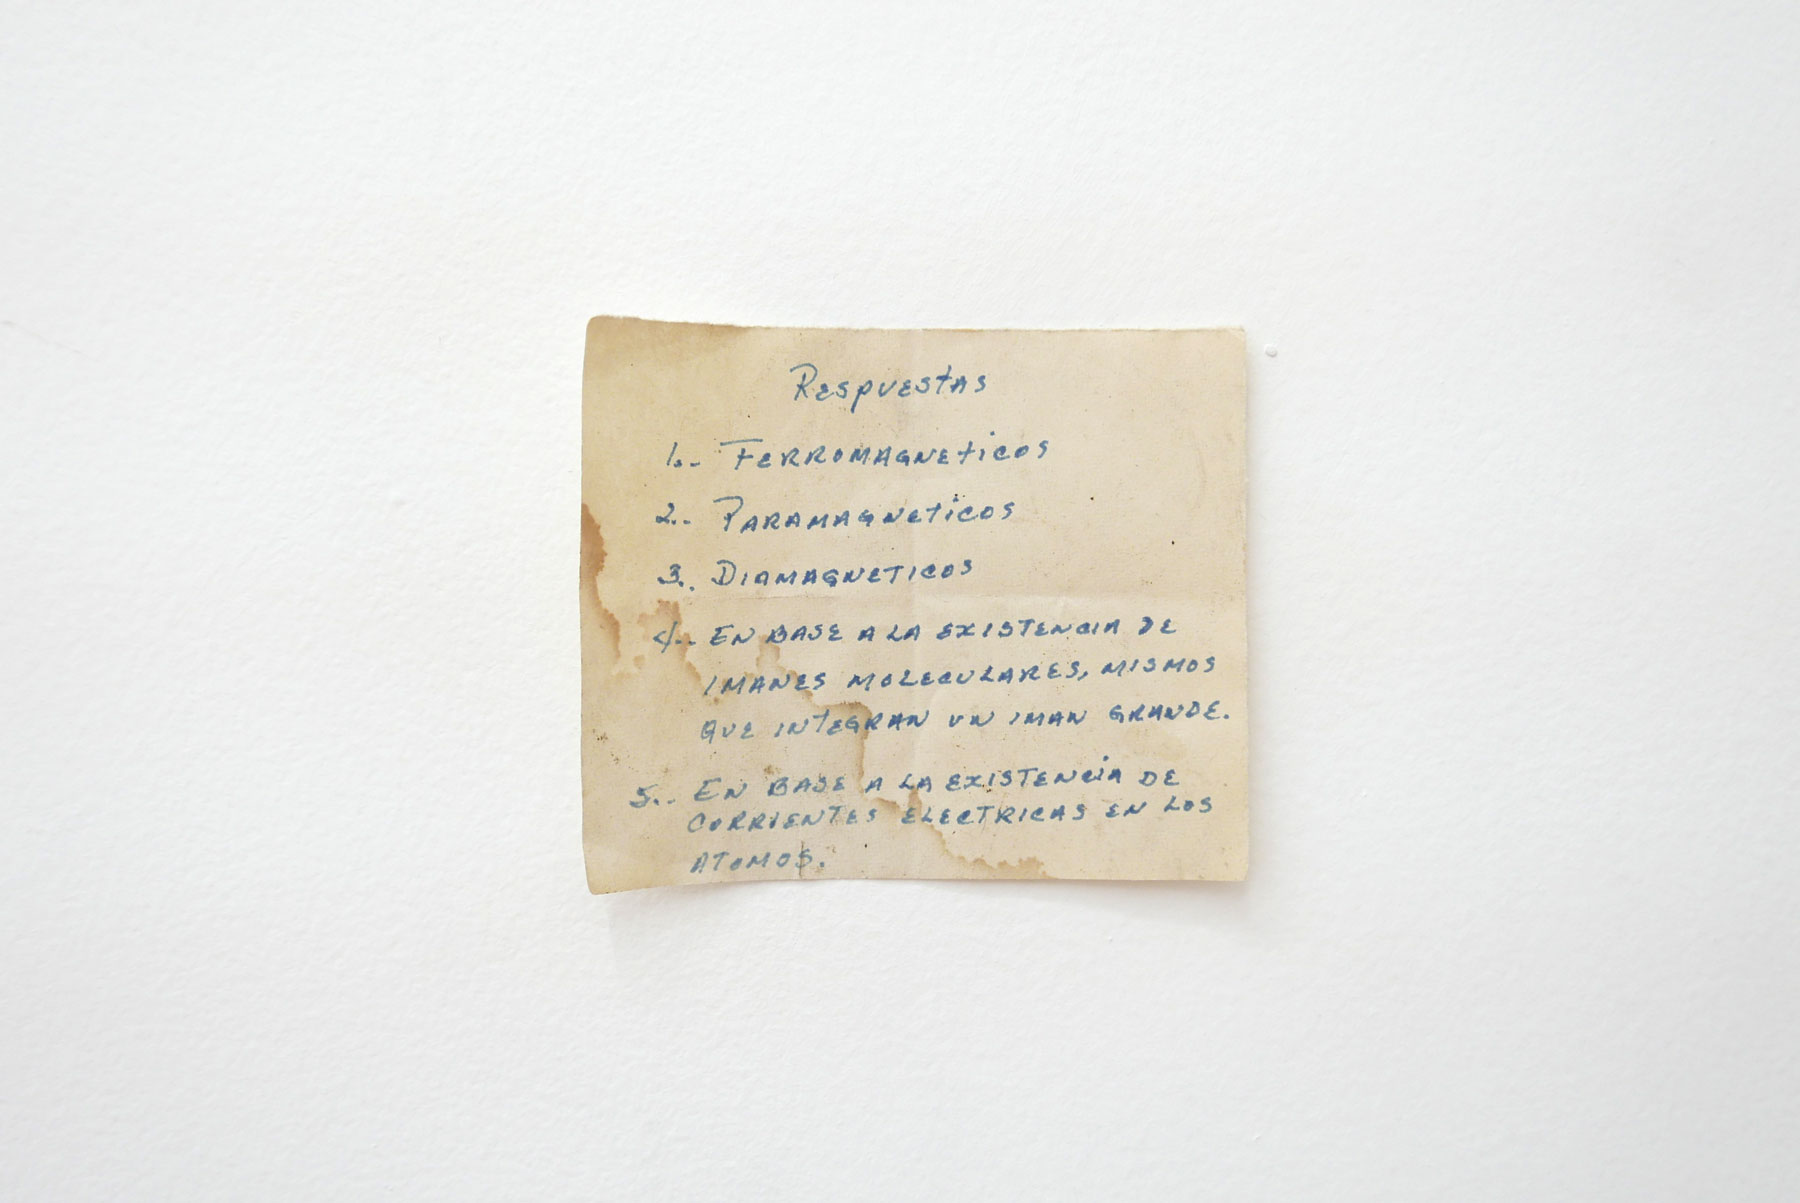 Respuestas
1.- FERROMAGNETiCOS
2.- PARAMAGNETiCOS
3.. DIAMAGNETICOS
4.- EN BASE A LA EXISTENCIA DE
IMANES MOLECULARES, MISMOS
QUE INTEGRAN UN IMAN GRANDE.
5.. EN BASE A LA EXISTENCiA DE
CORRIENTES ELECTRICAS EN LOS
ATOMOS.